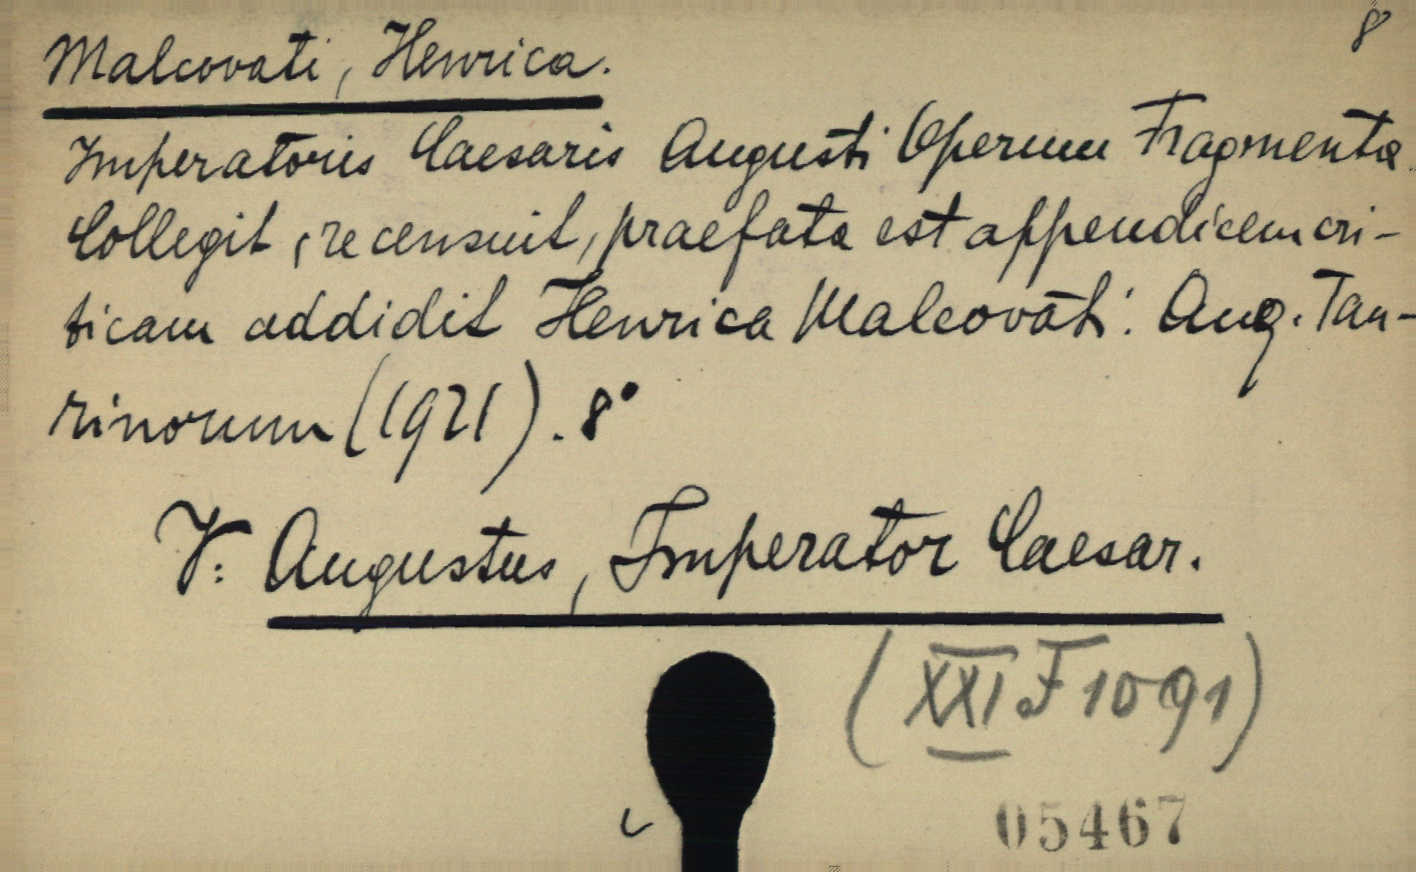 8°
Malcovati, Henrica.
Imperatoris Caesaris Augusti Operum Fragmenta.
Collegit, recensuit, praefata est appendicem cri-
ticam addidit Henrica Malcovati. Aug. Tau-
rinorum (1921). 8°
V: Augustus, Imperator Caesar.
(XXI F 1091)
05467